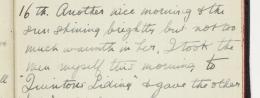 16th. Another nice morning & the
sun shining brightly but not too
much warmth in her. I took the
men myself this morning to
"Quintons Siding" & gave the other